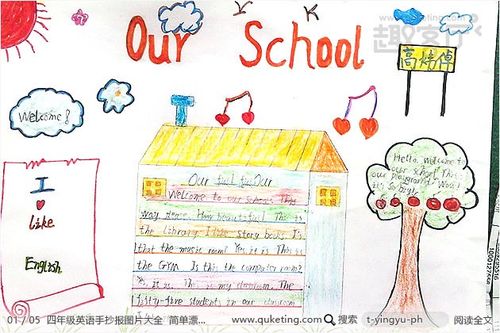 Our School
高炜倬
Welcome!
I
Like
English
Our
Welcome to our school. This
way please. How beautiful! This is
the library. I like story books. Is
that the music room? Yes, it is. This is
the GYM. Is this the computer room?
Yes, it is. This is my classroom. The
fifty-five students in our classroom
Hello, welcome to
our school! This is
our playground. Wow!
It's so big!
01 / 05 四年级英语手抄报图片大全 简单漂... www.quketing.com 搜索 t-yingyu-ph 阅读全文